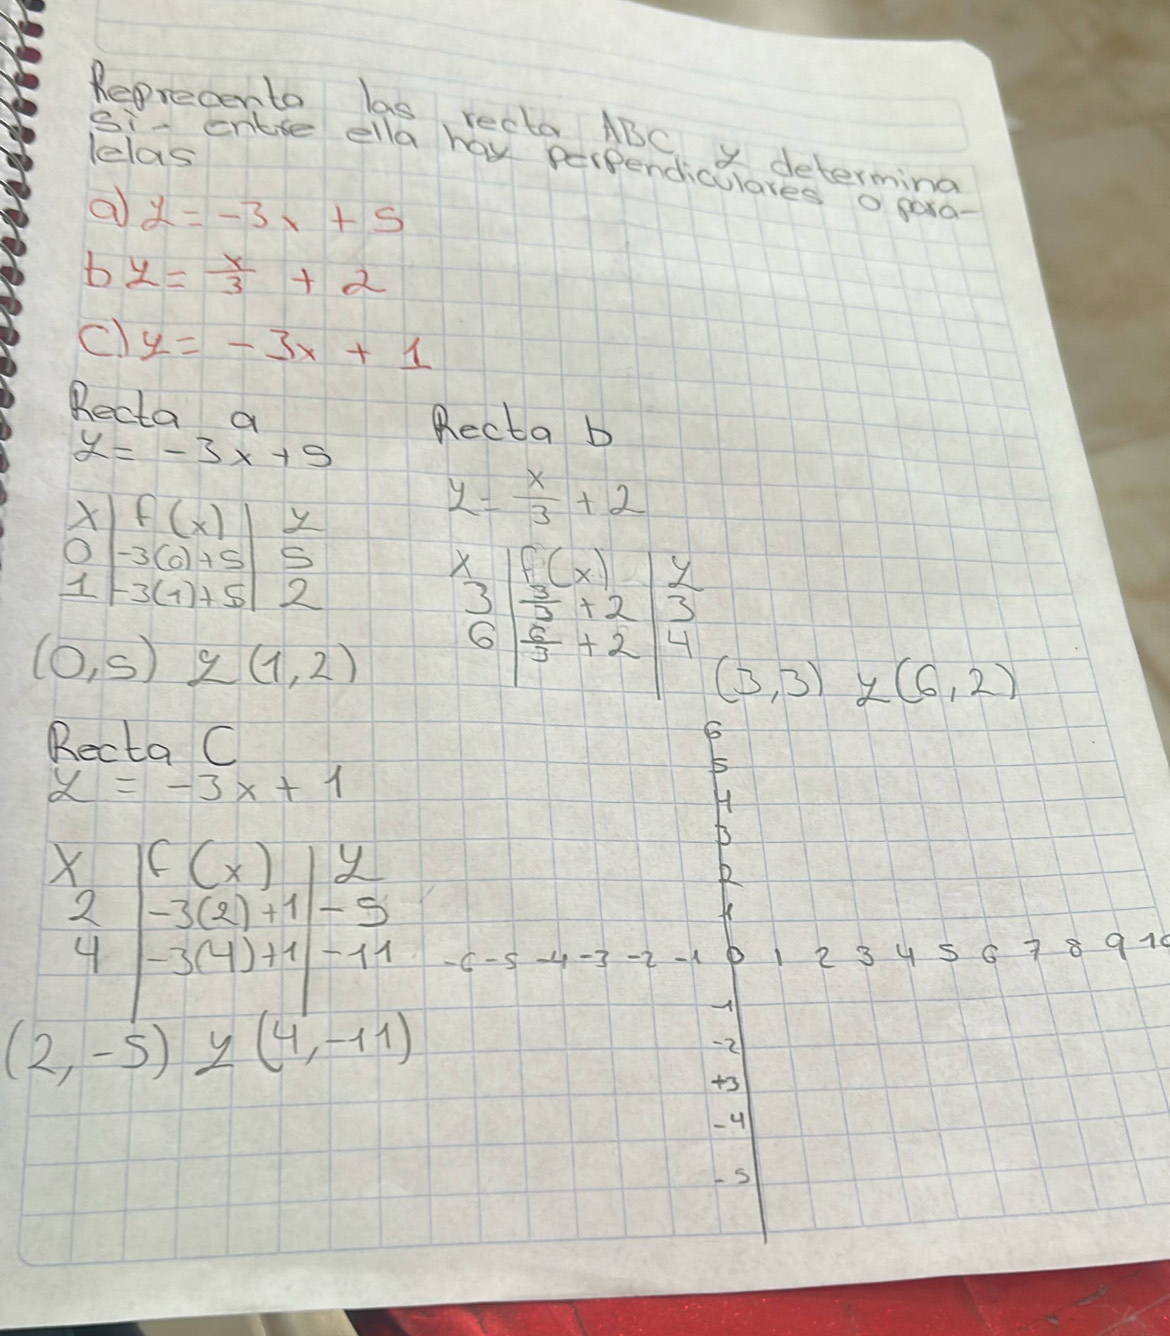 Reprecenta las recta ABC y determina
si- entre ella hay perpendiculares o para-
lelas
a) y = -3x + 5
b y = x/3 + 2
c) y = - 3x + 1
Recta a
y = -3x + 5
x | f(x) | y
0 | -3(0)+5 | 5
1 | -3(1)+5 | 2
(0,5) y (1,2)
Recta b
y = x/3 + 2
x | f(x) | y
3 | 3/3 + 2 | 3
6 | 6/3 + 2 | 4
(3,3) y (6,2)
Recta C
y = -3x + 1
x | f(x) | y
2 | -3(2)+1 | -5
4 | -3(4)+1 | -11
(2,-5) y (4,-11)
6
5
4
3
2
1
-6 -5 -4 -3 -2 -1 0 1 2 3 4 5 6 7 8 9 10
-1
-2
+3
-4
-5